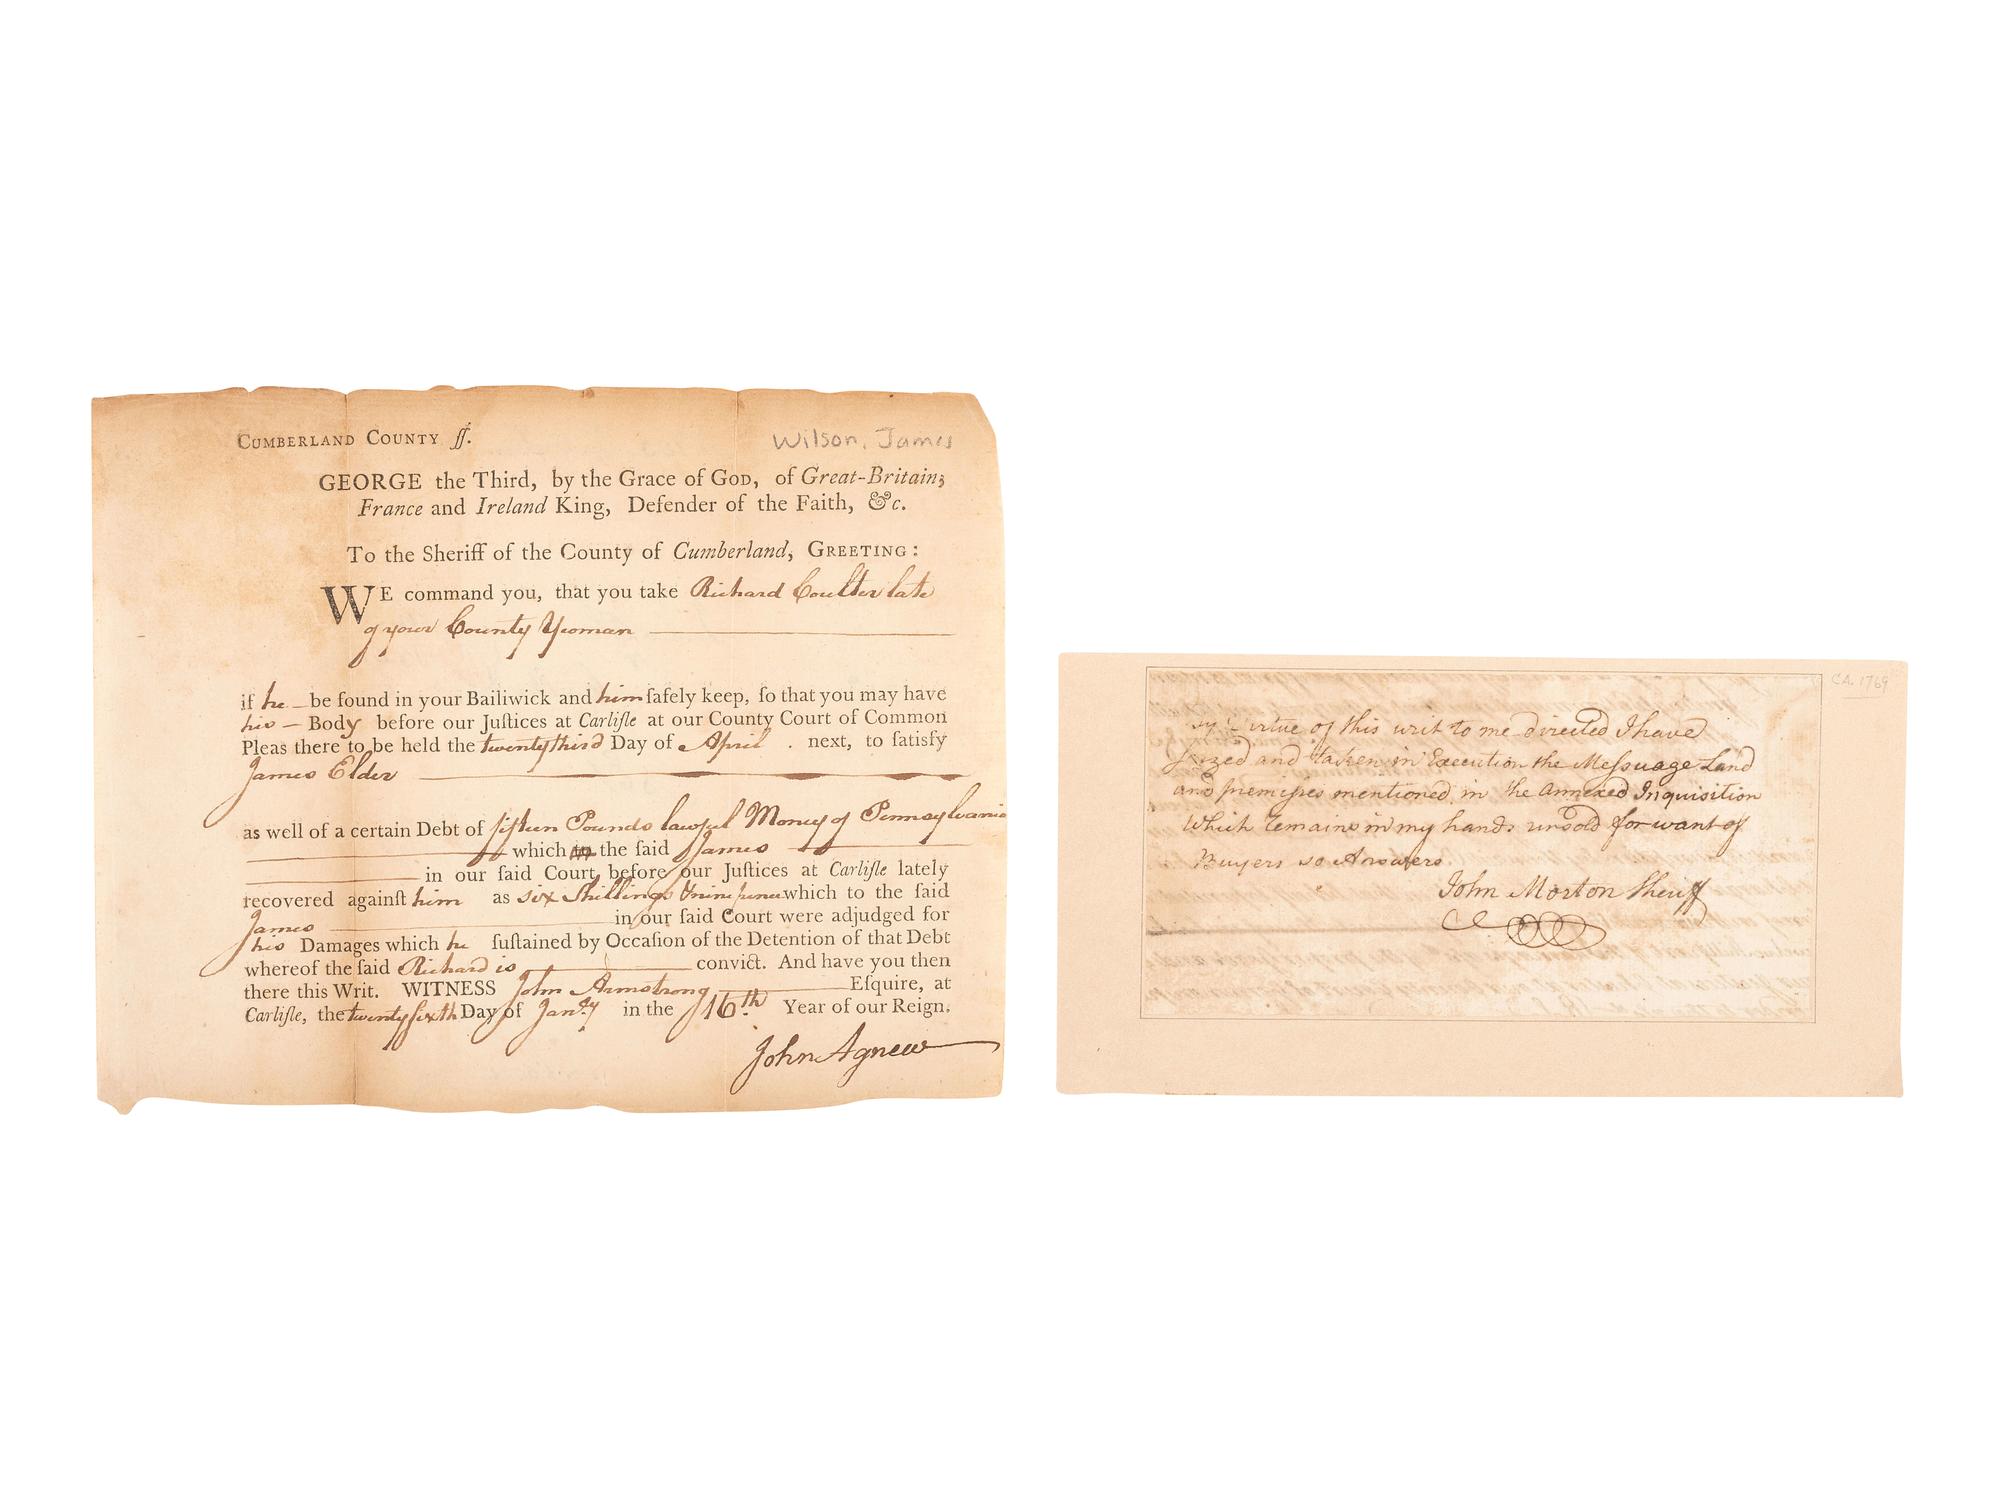 CUMBERLAND COUNTY ſſ.
Wilson, James
GEORGE the Third, by the Grace of GOD, of Great-Britain,
France and Ireland King, Defender of the Faith, &c.
To the Sheriff of the County of Cumberland, GREETING:
WE command you, that you take Richard Coulter late
of your County Yeoman
if he be found in your Bailiwick and him ſafely keep, ſo that you may have
his Body before our Juſtices at Carliſle at our County Court of Common
Pleas there to be held the twenty third Day of April next, to ſatisfy
James Elder
as well of a certain Debt of fifteen Pounds lawful Money of Pennsylvania
which the ſaid James
in our ſaid Court before our Juſtices at Carliſle lately
recovered againſt him as six Shillings & nine pence which to the ſaid
James in our ſaid Court were adjudged for
his Damages which he ſuſtained by Occaſion of the Detention of that Debt
whereof the ſaid Richard is convict. And have you then
there this Writ. WITNESS John Armstrong Eſquire, at
Carliſle, the twenty ſixth Day of Jany in the 16th Year of our Reign.
John Agnew
CA. 1769
By Virtue of this writ to me directed I have
Seized and taken in Execution the Meſsuage Land
and premiſses mentioned in the Annexed Inquisition
Which Remains in my hands unsold for want of
Buyers so Answers
John Morton Sheriff